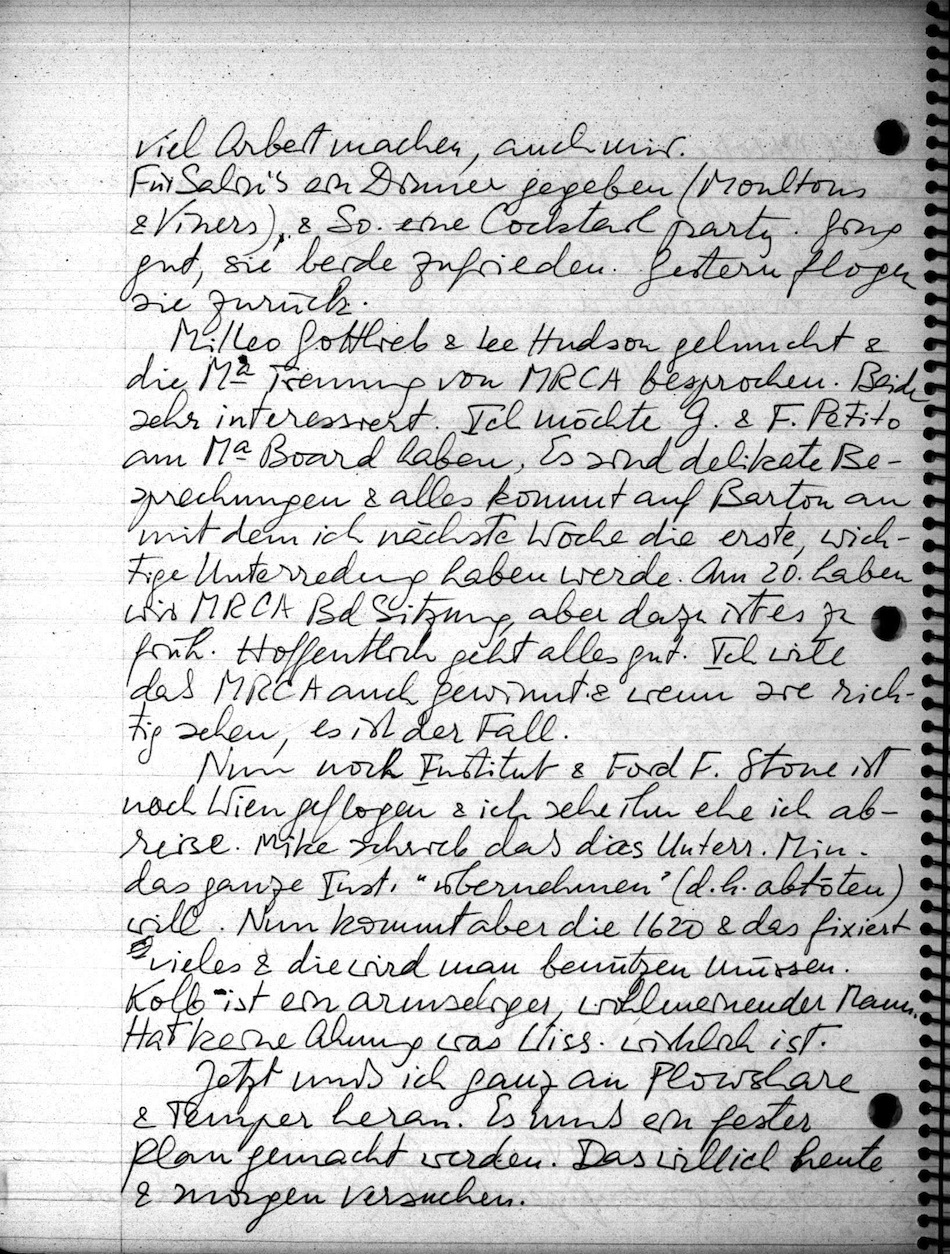 viel Arbeit machen, auch mir.
Für Salin's ein Dinner gegeben (Moultons
& Viners), & So. eine Cocktail party. Ging
gut, sie beide zufrieden. Gestern flogen
sie zurück.
Mit Leo Gottlieb & Lee Hudson geluncht &
die Ma Trennung von MRCA besprochen. Beide
sehr interessiert. Ich möchte G. & F. Petito
am Ma Board haben. Es sind delikate Be-
sprechungen & alles kommt auf Barton an
mit dem ich nächste Woche die erste, wich-
tige Unterredung haben werde. Am 20. haben
wir MRCA Bd Sitzung, aber dazu ist es zu
früh. Hoffentlich geht alles gut. Ich will
daß MRCA auch gewinnt & wenn sie rich-
tig sehen, es ist der Fall.
Nun noch Institut & Ford F. Stone ist
nach Wien geflogen & ich sehe ihn ehe ich ab-
reise. Mike schrieb daß das Unterr. Min.
das ganze Inst. "übernehmen" (d.h. abtöten)
will. Nun kommt aber die 1620 & das fixiert
vieles & die wird man benützen müssen.
Kolb ist ein armseliger, wohlmeinender Mann.
Hat keine Ahnung was Wiss. wirklich ist.
Jetzt muß ich ganz an Plowshare
& Temper heran. Es muß ein fester
Plan gemacht werden. Das will ich heute
& morgen versuchen.